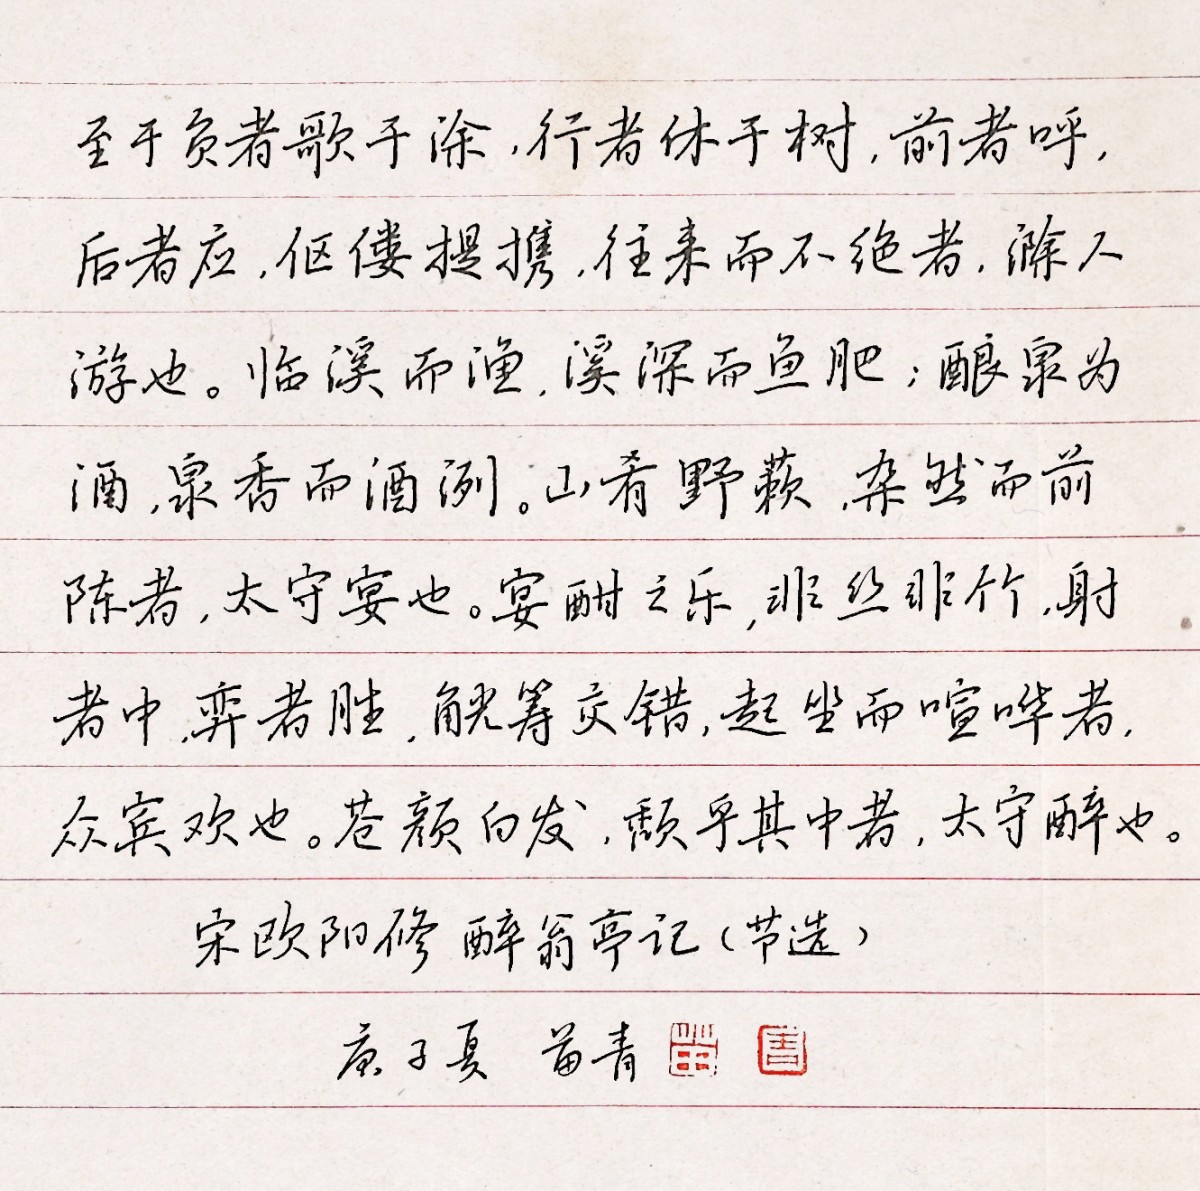 至于负者歌于涂，行者休于树，前者呼，
后者应，伛偻提携，往来而不绝者，滁人
游也。临溪而渔，溪深而鱼肥；酿泉为
酒，泉香而酒洌。山肴野蔌，杂然而前
陈者，太守宴也。宴酣之乐，非丝非竹，射
者中，弈者胜，觥筹交错，起坐而喧哗者，
众宾欢也。苍颜白发，颓乎其中者，太守醉也。
宋欧阳修 醉翁亭记（节选）
庚子夏 苗青 苗 書